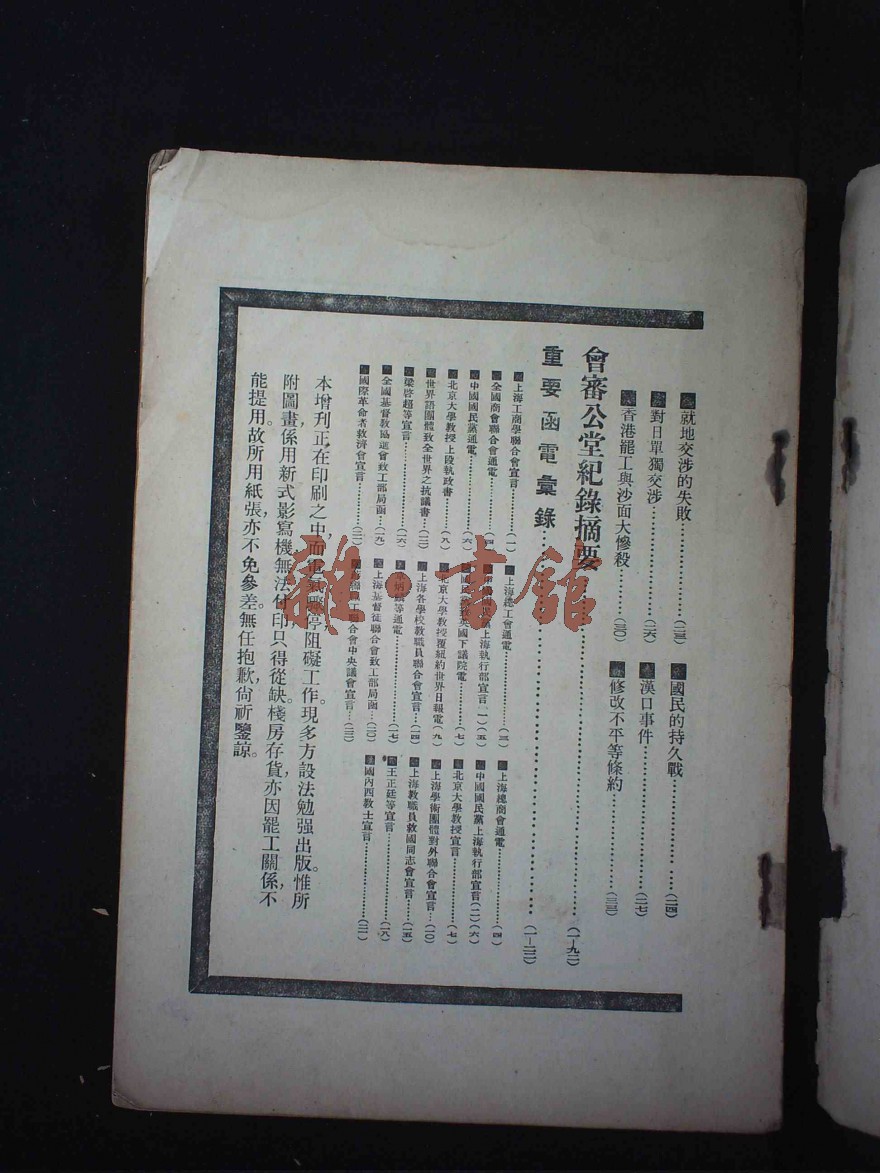 就地交涉的失敗……(二三)
國民的持久戰……(二四)
對日單獨交涉……(二六)
漢口事件……(二七)
香港罷工與沙面大慘殺……(三〇)
修改不平等條約……(三三)
會審公堂紀錄摘要……(一-九二)
重要函電彙錄……(一-二二)
上海工商學聯合會宣言……(一)
上海總工會通電……(三)
上海總商會通電……(四)
全國商會聯合會通電……(四)
上海執行部宣言(一)(五)
中國國民黨上海執行部宣言(二)(六)
中國國民黨通電……(六)
國民黨致英國下議院電……(七)
北京大學教授宣言……(七)
北京大學教授上段執政書……(八)
北京大學教授覆紐約世界日報電(九)
上海學術團體對外聯合會宣言…(一〇)
世界語團體致全世界之抗議書…(一三)
上海各學校教職員聯合會宣言…(一四)
上海教職員救國同志會宣言……(一五)
梁啓超等宣言……(一六)
等通電……(一七)
王正廷等宣言……(一八)
全國基督教協進會致工部局函…(一九)
上海基督徒聯合會致工部局函…(二〇)
國內西教士宣言……(二一)
國際革命者救濟會宣言……(二一)
工聯合會中央議會宣言…(二二)
本增刊正在印刷之中,而電氣驟停,阻礙工作。現多方設法勉强出版。惟所
附圖畫,係用新式影寫機,無法付印,只得從缺。棧房存貨,亦因罷工關係,不
能提用。故所用紙張,亦不免參差。無任抱歉,尙祈鑒諒。
雜·書館